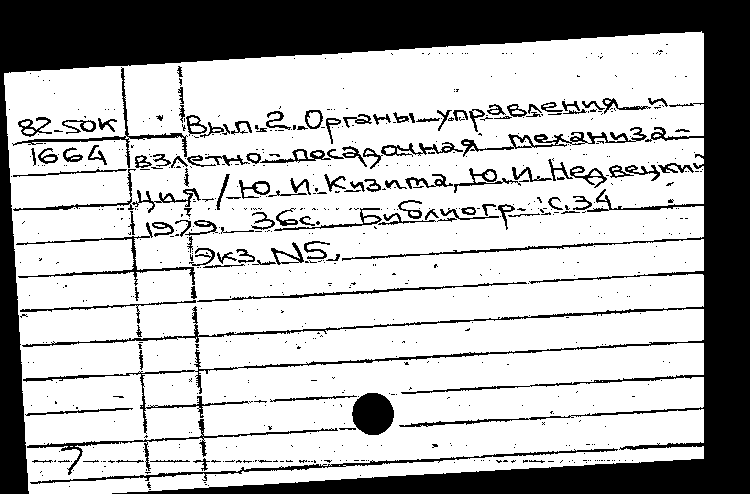 82-50К Вып.2. Органы управления и
1664 взлетно-посадочная механиза-
ция / Ю.И.Кизита, Ю.И.Недвецкий
1979. 36с. Библиогр.:с.34.
Экз. N5.
7